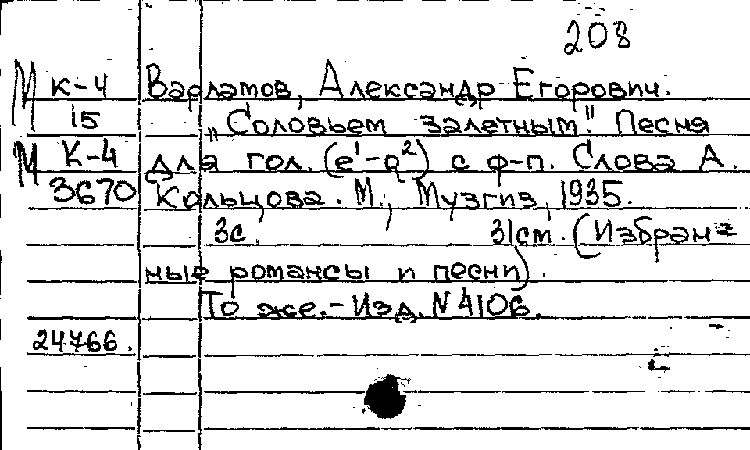 208
М К-4 Варламов, Александр Егорович.
15 „Соловьем залетным." Песня
М К-4 для гол. (e¹-g²) с ф-п. Слова А.
3670 Кольцова. М., Музгиз, 1935.
3с. 31см. (Избран=
ные романсы и песни).
То же.- Изд. N 4106.
24766.